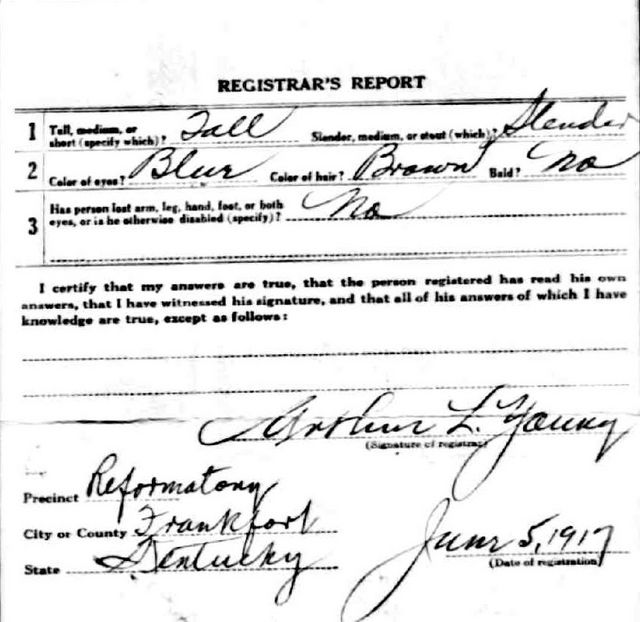 REGISTRAR'S REPORT
1 Tall, medium, or short (specify which)? Tall Slender, medium, or stout (which)? Slender
2 Color of eyes? Blue Color of hair? Brown Bald? No
3 Has person lost arm, leg, hand, foot, or both
eyes, or is he otherwise disabled (specify)? No
I certify that my answers are true, that the person registered has read his own
answers, that I have witnessed his signature, and that all of his answers of which I have
knowledge are true, except as follows:
Arthur L. Young
(Signature of registrar)
Precinct Reformatory
City or County Frankfort
State Kentucky
June 5, 1917
(Date of registration)